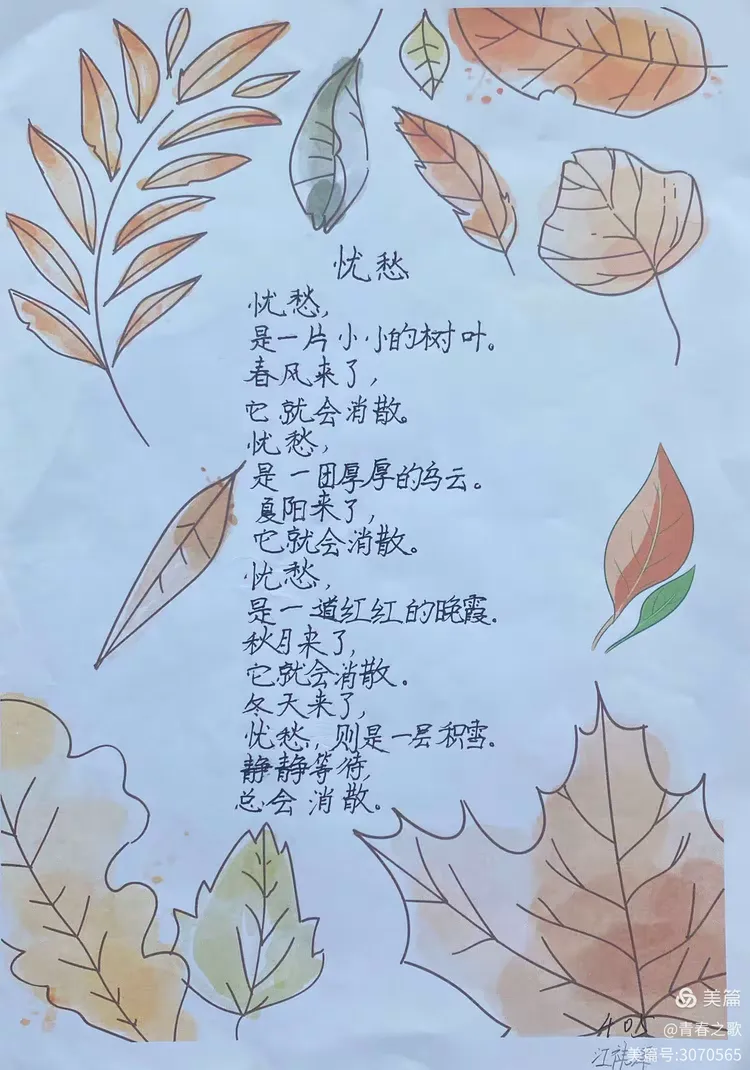 忧愁
忧愁，
是一片小小的树叶。
春风来了，
它就会消散。
忧愁，
是一团厚厚的乌云。
夏阳来了，
它就会消散。
忧愁，
是一道红红的晚霞.
秋月来了，
它就会消散。
冬天来了，
忧愁，则是一层积雪。
静静等待，
总会消散。
美篇
405
@青春之歌
美篇号:3070565
江